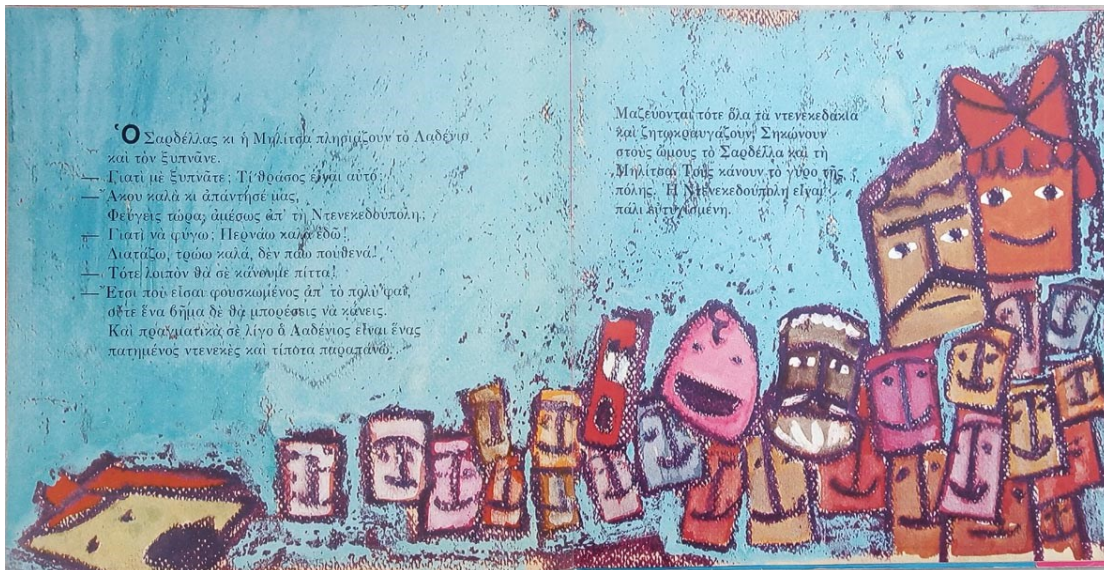 Ὁ Σαρδέλλας κι ἡ Μηλίτσα πλησιάζουν τὸ Λαδένιο
καὶ τὸν ξυπνᾶνε.
— Γιατὶ μὲ ξυπνᾶτε; Τί θράσος εἶναι αὐτό;
— Ἄκου καλὰ κι ἀπάντησέ μας,
Φεύγεις τώρα, ἀμέσως ἀπ' τὴ Ντενεκεδούπολη;
— Γιατὶ νὰ φύγω; Περνάω καλὰ ἐδῶ!
Διατάζω, τρώω καλά, δὲν πάω πουθενά!
— Τότε λοιπὸν θὰ σὲ κάνουμε πίττα!
— Ἔτσι ποὺ εἶσαι φουσκωμένος ἀπ' τὸ πολὺ φαΐ,
οὔτε ἕνα βῆμα δὲ θὰ μπορέσεις νὰ κάνεις.
Καὶ πραγματικὰ σὲ λίγο ὁ Λαδένιος εἶναι ἕνας
πατημένος ντενεκὲς καὶ τίποτα παραπάνω.
Μαζεύονται τότε ὅλα τὰ ντενεκεδάκια
καὶ ζητωκραυγάζουν. Σηκώνουν
στοὺς ὤμους τὸ Σαρδέλλα καὶ τὴ
Μηλίτσα. Τοὺς κάνουν τὸ γύρο τῆς
πόλης. Ἡ Ντενεκεδούπολη εἶναι
πάλι εὐτυχισμένη.